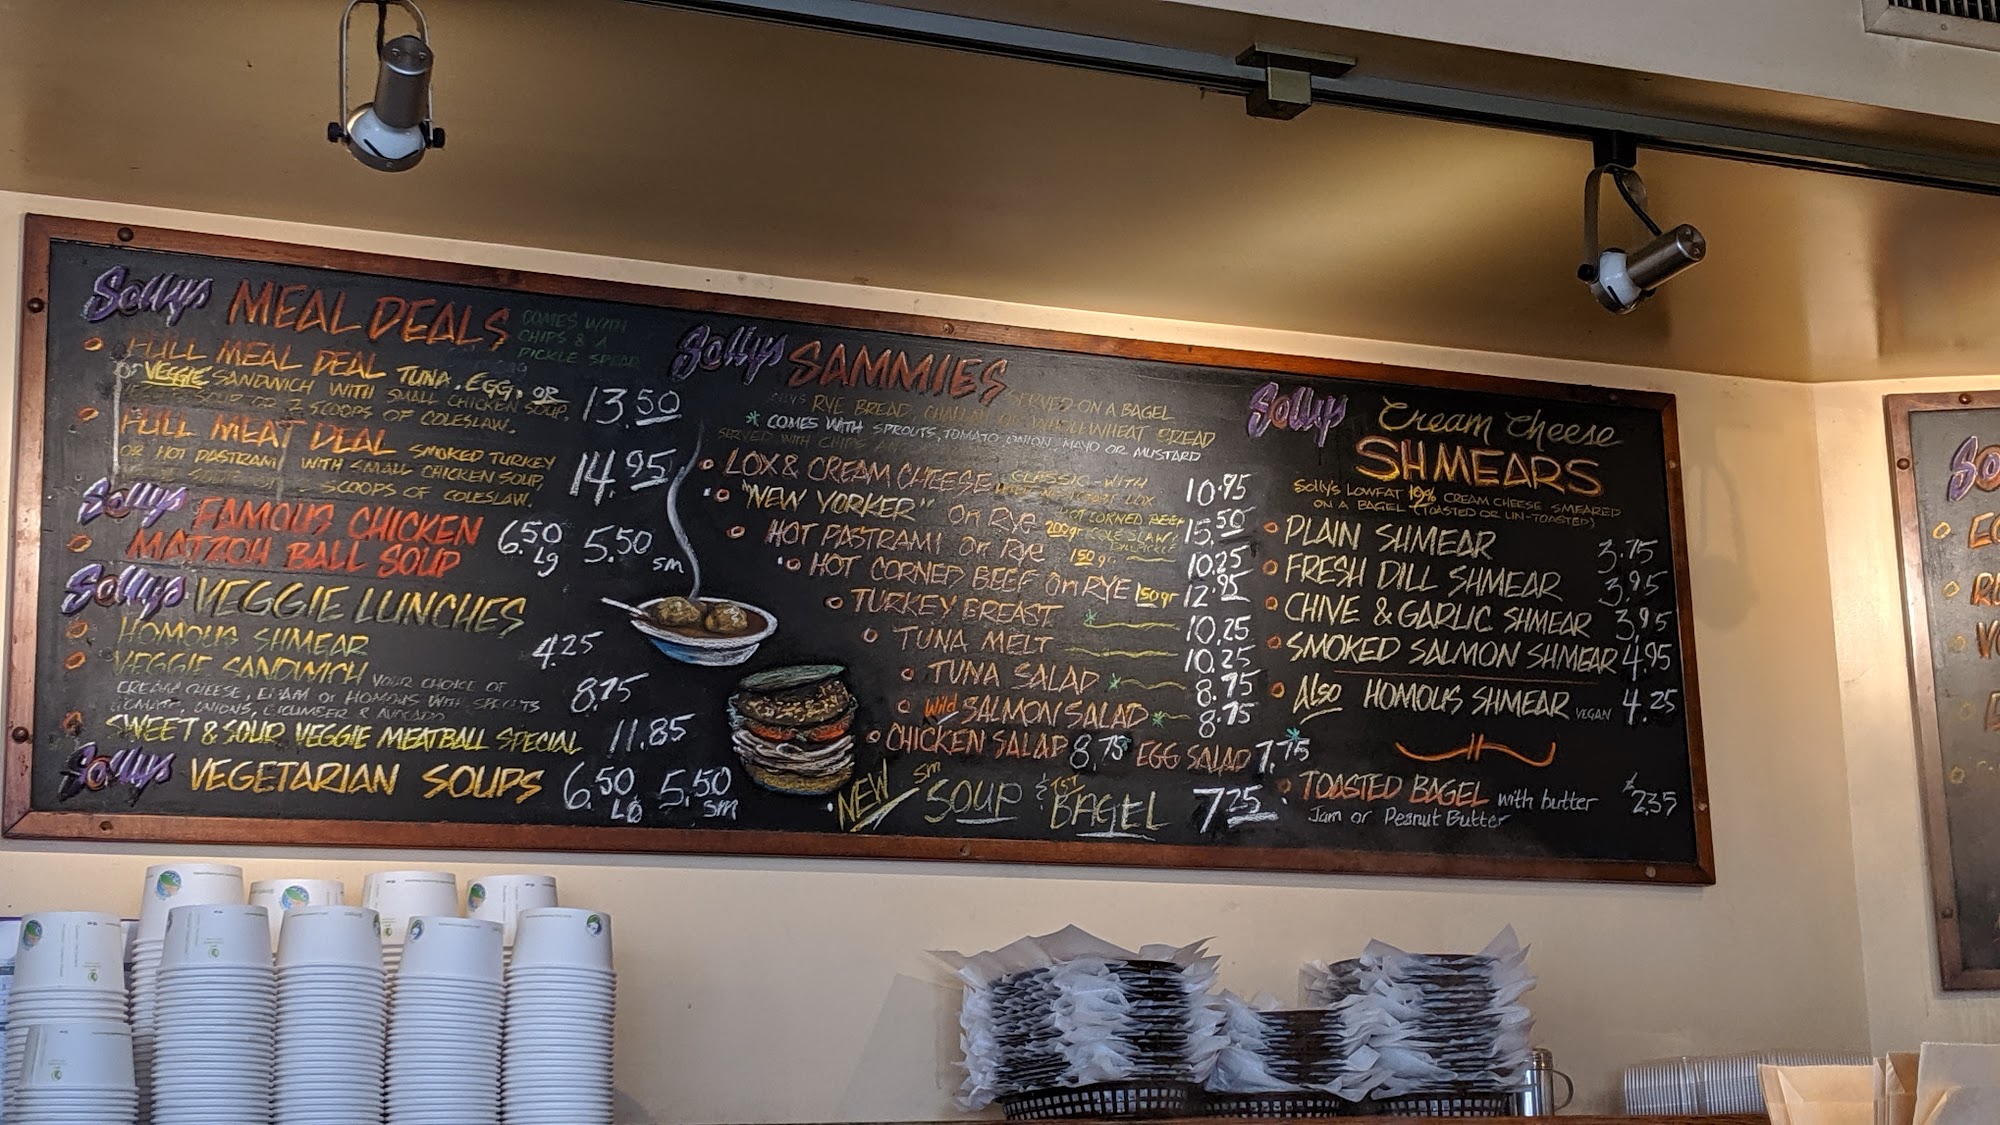 Sollys MEAL DEALS COMES WITH
CHIPS & A
PICKLE SPEAR
FULL MEAL DEAL TUNA, EGG, OR
or VEGGIE SANDWICH WITH SMALL CHICKEN SOUP,
SOUP OR 2 SCOOPS OF COLESLAW. 13.50
FULL MEAT DEAL SMOKED TURKEY
OR HOT PASTRAMI WITH SMALL CHICKEN SOUP,
2 SCOOPS OF COLESLAW. 14.95
Sollys FAMOUS CHICKEN
MATZOH BALL SOUP 6.50 Lg 5.50 sm
Sollys VEGGIE LUNCHES
HOMOUS SHMEAR 4.25
VEGGIE SANDWICH YOUR CHOICE OF
CREAM CHEESE, or HOMOUS WITH SPROUTS
TOMATO, ONIONS, CUCUMBER & AVOCADO 8.75
SWEET & SOUR VEGGIE MEATBALL SPECIAL 11.85
Sollys VEGETARIAN SOUPS 6.50 LG 5.50 sm
Sollys SAMMIES SERVED ON A BAGEL
RYE BREAD, CHALLAH OR WHOLEWHEAT BREAD
* COMES WITH SPROUTS, TOMATO, ONION, MAYO OR MUSTARD
SERVED WITH CHIPS
LOX & CREAM CHEESE CLASSIC - WITH
LOX 10.95
"NEW YORKER" on Rye 200gr HOT CORNED BEEF
COLE SLAW 15.50
HOT PASTRAMI on Rye 150gr 10.25
HOT CORNED BEEF on RYE 150gr 12.95
TURKEY BREAST * 10.25
TUNA MELT 10.25
TUNA SALAD * 8.75
Wild SALMON SALAD * 8.75
CHICKEN SALAD 8.75* EGG SALAD 7.75*
NEW sm SOUP & TST BAGEL 7.25
Sollys Cream Cheese
SHMEARS
Solly's LOWFAT 19% CREAM CHEESE SMEARED
ON A BAGEL (TOASTED OR UN-TOASTED)
PLAIN SHMEAR 3.75
FRESH DILL SHMEAR 3.95
CHIVE & GARLIC SHMEAR 3.95
SMOKED SALMON SHMEAR 4.95
Also HOMOUS SHMEAR VEGAN 4.25
TOASTED BAGEL with butter 2.35
Jam or Peanut Butter
So